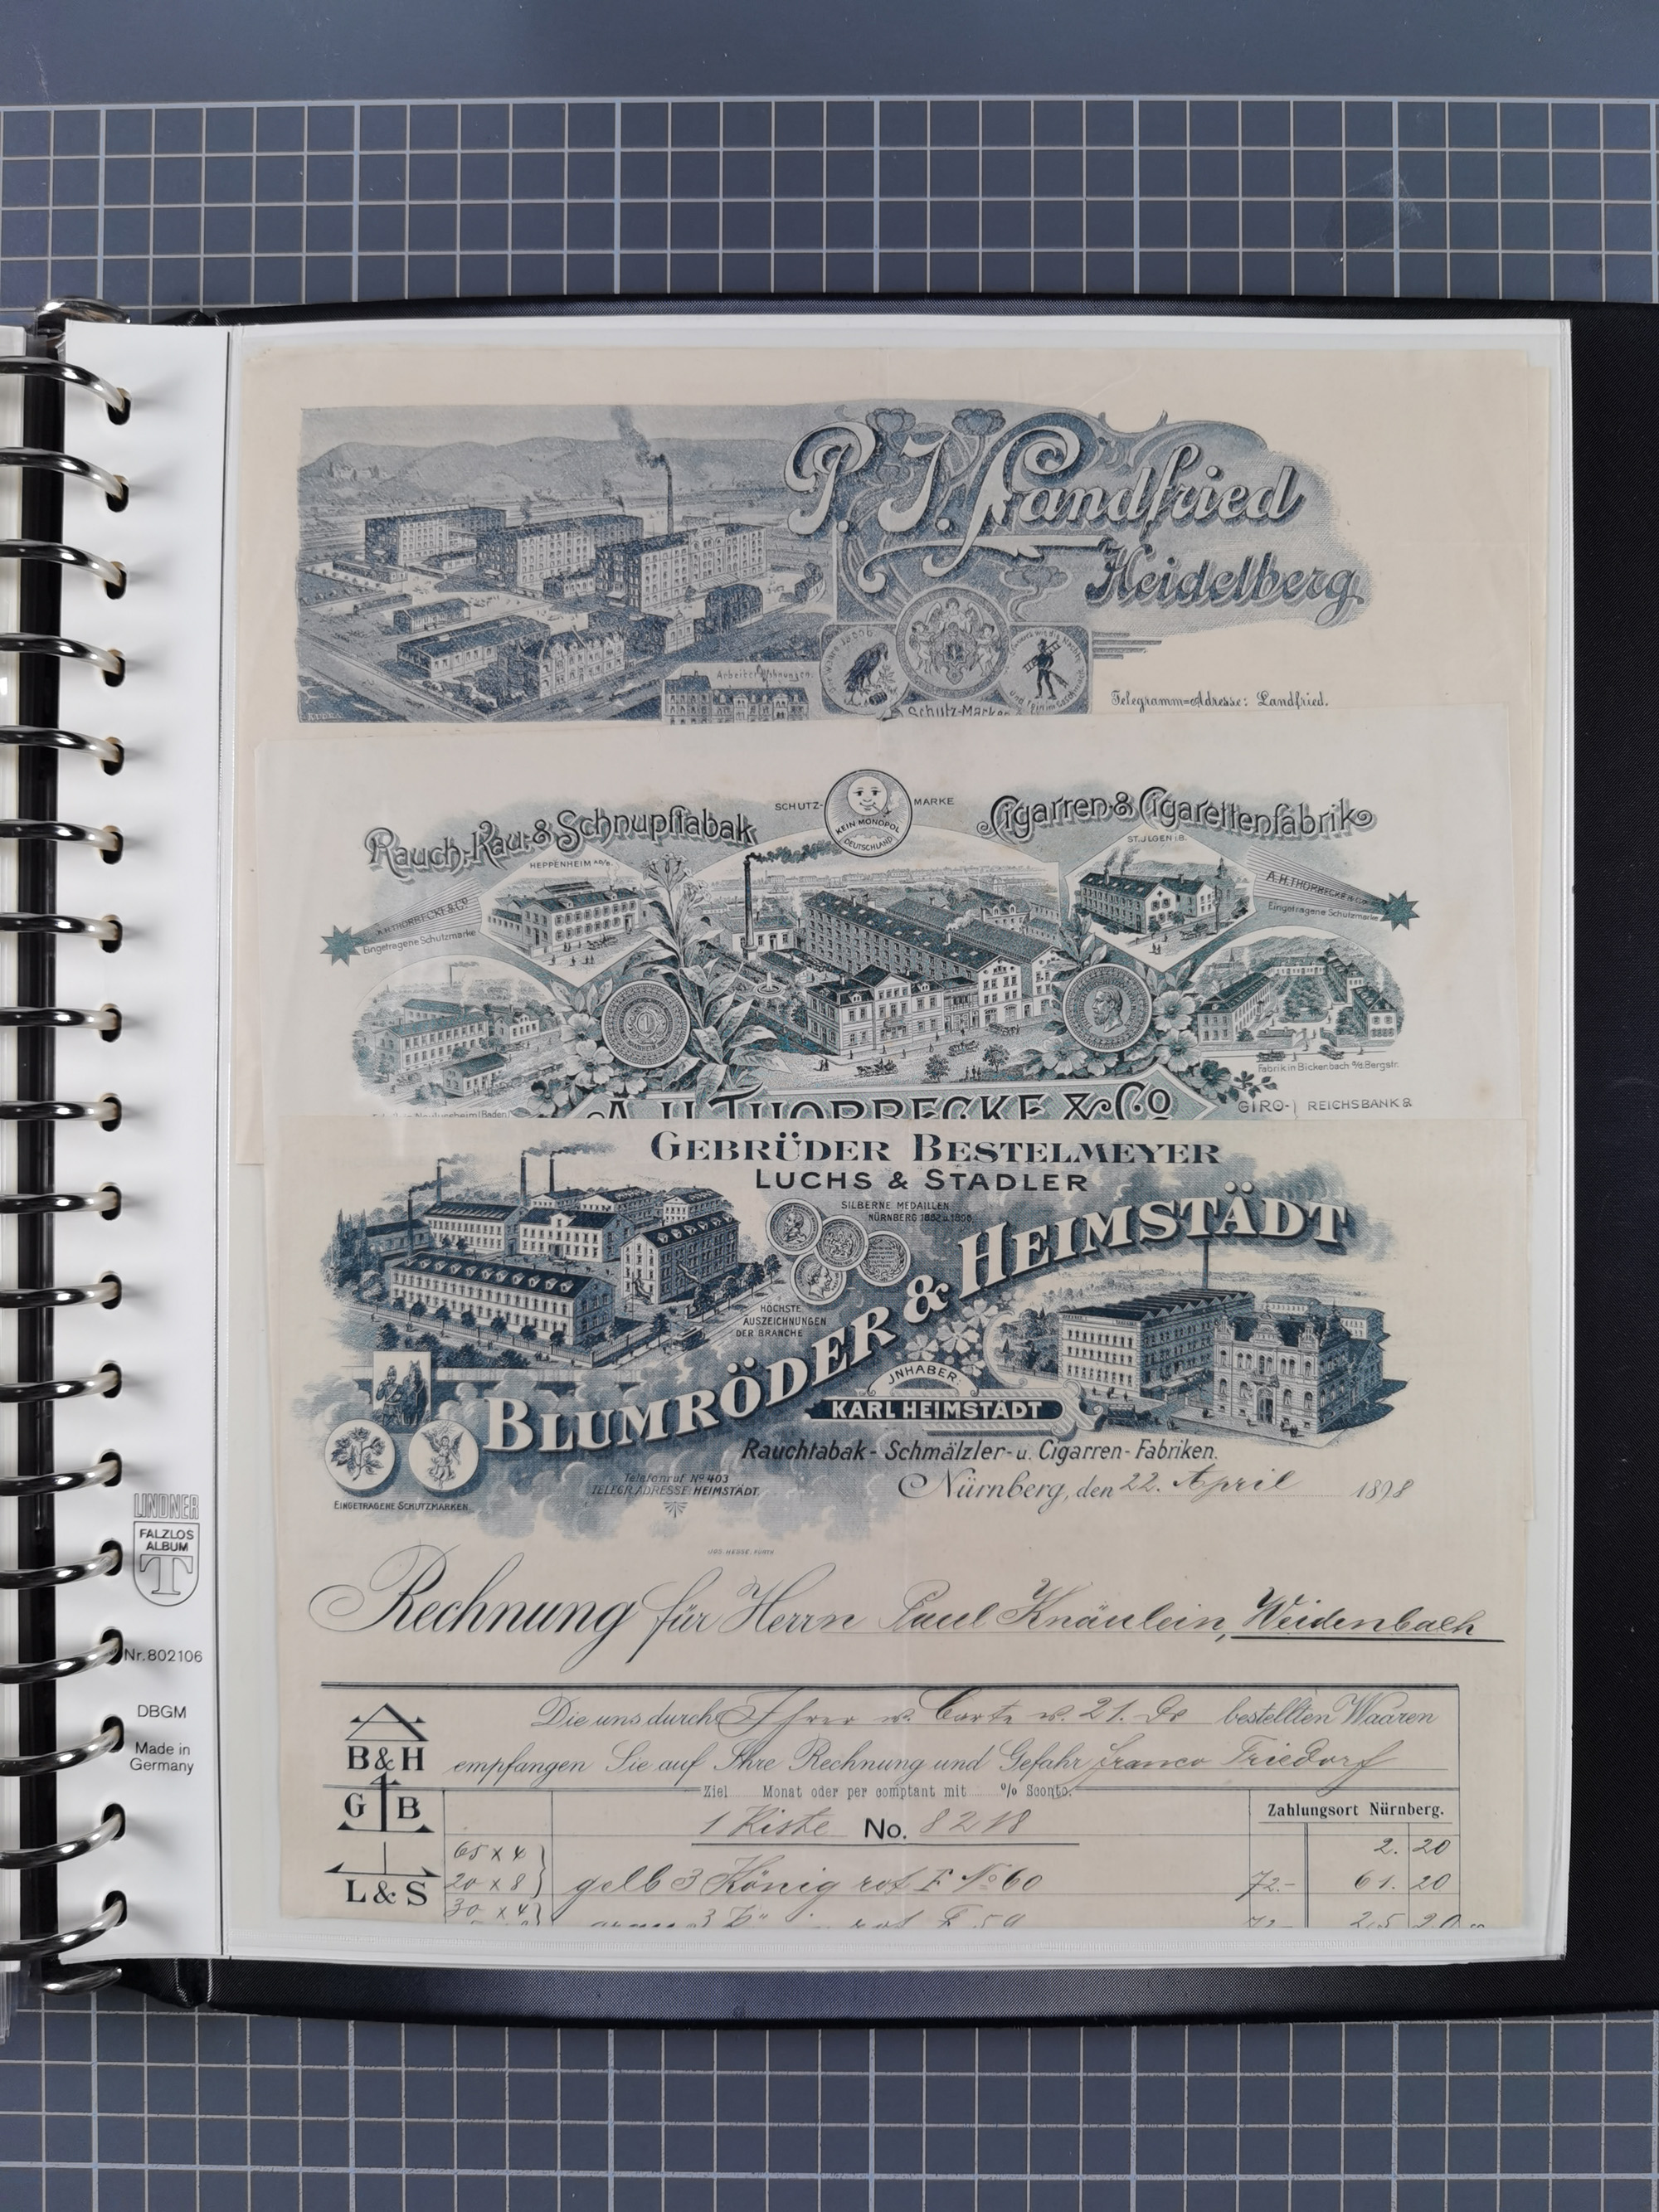 P. J. Landfried
Heidelberg
Arbeiter Wohnungen.
Schutz-Marken
Telegramm-Adresse: Landfried.
SCHUTZ- MARKE
KEIN MONOPOL
DEUTSCHLAND
Rauch-Kau-& Schnupftabak
Cigarren-& Cigarettenfabrik
HEPPENHEIM a/B.
ST. JLGEN i/B.
A.H. THORBECKE & Co
Eingetragene Schutzmarke
A.H. THORBECKE & Co
Eingetragene Schutzmarke
Fabrik in Bickenbach a/d Bergstr.
Neulussheim (Baden)
A. H. THORBECKE & Co
GIRO- REICHSBANK &
GEBRÜDER BESTELMEYER
LUCHS & STADLER
SILBERNE MEDAILLEN
NÜRNBERG 1882 u. 1896.
BLUMRÖDER & HEIMSTÄDT
HÖCHSTE
AUSZEICHNUNGEN
DER BRANCHE
JNHABER:
KARL HEIMSTÄDT
Rauchtabak- Schmälzler- u. Cigarren-Fabriken.
Telefonruf No 403
TELEGR. ADRESSE: HEIMSTÄDT.
EINGETRAGENE SCHUTZMARKEN.
Nürnberg, den 22. April 1898
JOS. HESSE, FÜRTH
Rechnung für Herrn Paul Knäulein, Weidenbach
Die uns durch Ihrer w. Carte v. 21. Ds bestellten Waaren
B&H empfangen Sie auf Ihre Rechnung und Gefahr franco Triesdorf
Ziel Monat oder per comptant mit % Sconto.
G B
1 Kiste No. 8218
Zahlungsort Nürnberg.
65 x 4 2. 20
20 x 8 gelb 3 König rot F No 60 72.- 61. 20
L & S
30 x 4
LINDNER
FALZLOS
ALBUM
T
Nr. 802106
DBGM
Made in
Germany